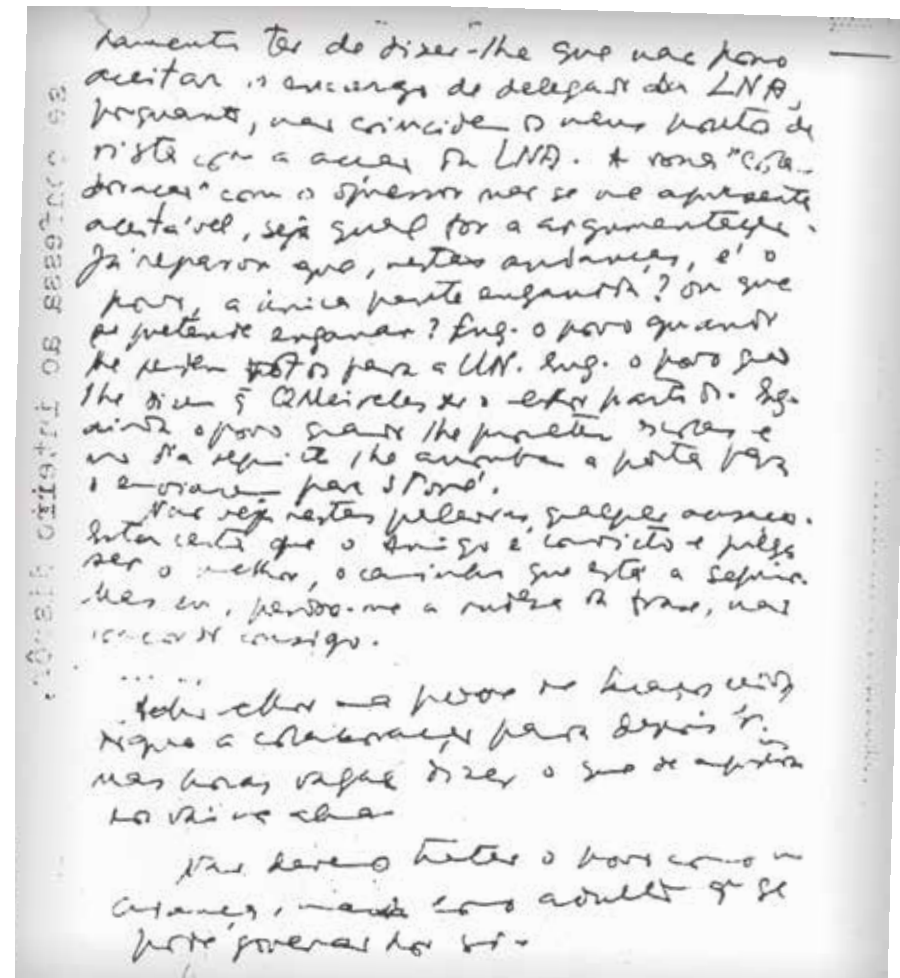 damente ter de dizer-lhe que não posso
aceitar o encargo de delegado da LNA,
porquanto, não coincidem os meus pontos de
vista com a acção da LNA. A vossa "cola-
boração" com o opressor não se me apresenta
aceitável, seja qual for a argumentação.
Já reparou que, nestas andanças, é o
povo, a única parte enganada? ou que
se pretende enganar? Eng. o povo quando
lhe pedem votos para a UN. Eng. o povo qdo
lhe dizem q̃ QMeireles é o partido. Eng.
ainda o povo quando lhe prometem escolas e
no dia seguinte lhe arromba a porta para
o enviarem para S Tomé.
Não veja nestas palavras qualquer acusação.
Estou certo que o Amigo é convicto e julga
ser o melhor, o caminho que está a seguir.
Mas eu, perdoe-me a rudeza da frase, não
concordo consigo.
.....
a colaboração para depois
nas horas vagas dizer o que de
nos vai na alma
Não devemos tratar o povo como
criança, mas como adulto q̃ se
pode governar por si.